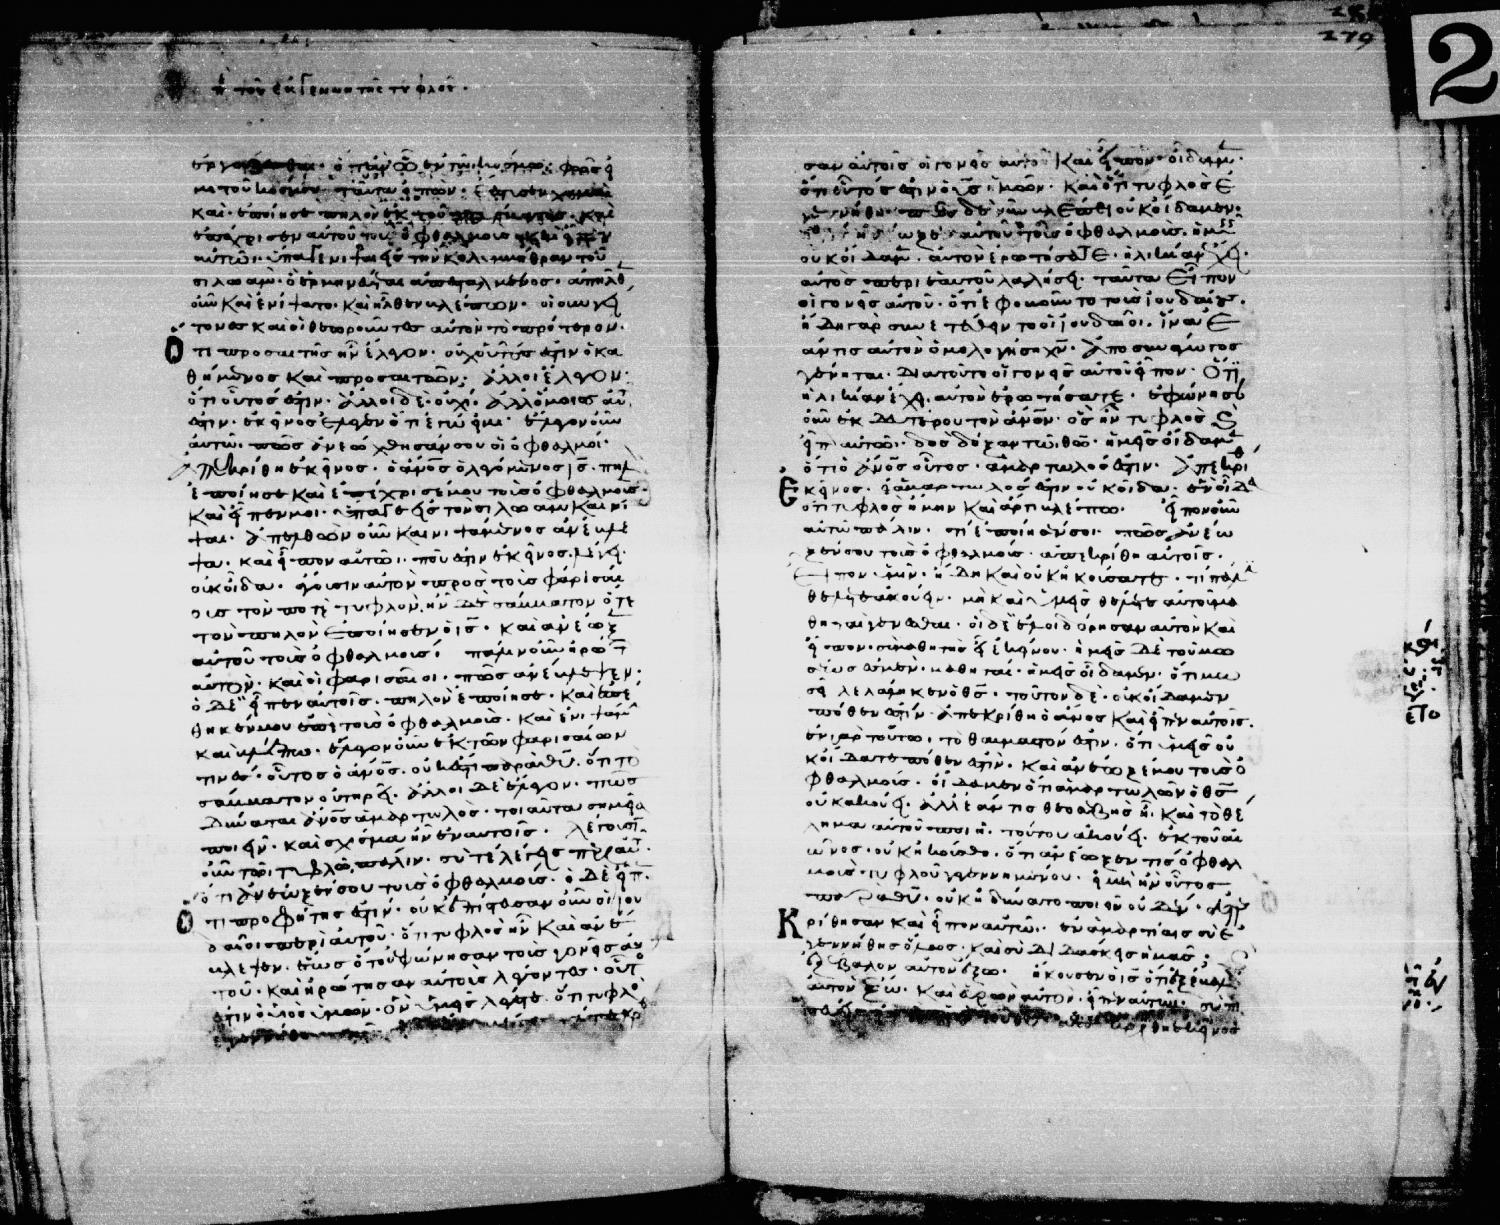 τοῦ ἐκ γενετῆς τυφλοῦ.
ἐργάζεσθαι· ὅταν ὦ ἐν τῶ κόσμω· φῶς εἰ
μι τοῦ κόσμου· ταῦτα εἰπὼν· ἔπτυσεν χαμαὶ
καὶ ἐποίησε πηλὸν ἐκ τοῦ πτύσματος· καὶ
ἐπέχρισεν αὐτοῦ τοὺς ὀφθαλμοὺς καὶ εἶπεν
αὐτῶ· ὕπαγε νίψαι εἰς τὴν κολυμβήθραν τοῦ
σιλωάμ· ὃ ἑρμηνεύεται ἀπεσταλμένος· ἀπῆλθεν
οὖν καὶ ἐνίψατο· καὶ ἦλθεν βλέπων· οἱ οὖν γεί
τονες καὶ οἱ θεωροῦντες αὐτὸν τὸ πρότερον·
ὅτι προσαίτης ἦν ἔλεγον· οὐχ οὗτός ἐστιν ὁ κα
θήμενος καὶ προσαιτῶν; ἄλλοι ἔλεγον·
ὅτι οὗτος ἐστιν· ἄλλοι δὲ· οὐχί· ἀλλ' ὅμοιος αὐτῶ
ἐστιν· ἐκεῖνος ἔλεγεν ὅτι ἐγώ εἰμι· ἔλεγον οὖν
αὐτῶ· πῶς ἀνεώχθησάν σου οἱ ὀφθαλμοί·
ἀπεκρίθη ἐκεῖνος· ὁ ἄνος ὁ λεγόμενος ις· πηλ
ἐποίησε καὶ ἐπέχρισέ μου τοὺς ὀφθαλμούς·
καὶ εἶπέν μοι· ὕπαγε εἰς τὸν σιλωὰμ καὶ νί
ψαι· ἀπελθὼν οὖν καὶ νιψάμενος ἀνέβλε
ψα· καὶ εἶπον αὐτῶ· ποῦ ἐστιν ἐκεῖνος· λέγει·
οὐκ οἶδα· ἄγουσιν αὐτὸν πρὸς τοὺς φαρισαί
ους τόν ποτε τυφλόν· ἦν δὲ σάββατον ὅτε
τὸν πηλὸν ἐποίησεν ὁ ις· καὶ ἀνέωξ
αὐτοῦ τοὺς ὀφθαλμούς· πάλιν οὖν ἠρώτ
αὐτὸν· καὶ οἱ φαρισαῖοι· πῶς ἀνέβλεψεν·
ὁ δὲ εἶπεν αὐτοῖς· πηλὸν ἐποίησε· καὶ ἐπέ
θηκέν μου ἐπὶ τοὺς ὀφθαλμούς· καὶ ἐνιψάμ
καὶ βλέπω· ἔλεγον οὖν ἐκ τῶν φαρισαίων
τινές· οὗτος ὁ ἄνος· οὐκ ἔστι παρὰ θυ· ὅτι τὸ
σάββατον οὐ τηρεῖ· ἄλλοι δὲ ἔλεγον· πῶς
δύναται ἄνος ἁμαρτωλὸς· τοιαῦτα σημεῖα
ποιεῖν· καὶ σχίσμα ἦν ἐν αὐτοῖς· λέγουσιν
οὖν τῶ τυφλῶ πάλιν· σὺ τί λέγεις περὶ αὐτ
ὅτι ἀνέωξέν σου τοὺς ὀφθαλμούς· ὁ δὲ εἶπ·
ὅτι προφήτης ἐστίν· οὐκ ἐπίστευσαν οὖν οἱ ἰου
δαῖοι περὶ αὐτοῦ· ὅτι τυφλὸς ἦν καὶ ἀνέ
βλεψεν· ἕως ὅτου ἐφώνησαν τοὺς γονεῖς αὐ
τοῦ· καὶ ἠρώτησαν αὐτοὺς λέγοντες· οὗτο
ἐστιν ὁ υἱὸς ὑμῶν· ὃν ὑμεῖς λέγετε· ὅτι τυφλὸ
ἐγεννήθη
σαν αὐτοῖς οἱ γονεῖς αὐτοῦ καὶ εἶπον· οἴδαμεν·
ὅτι οὗτός ἐστιν ὁ υἱς ἡμῶν· καὶ ὅτι τυφλὸς ἐ
γεννήθη· πῶς δὲ νῦν βλέπει οὐκ οἴδαμεν·
αὐτοῦ τοὺς ὀφθαλμούς· ἡμεῖς
οὐκ οἴδαμ· αὐτὸν ἐρωτήσατε· ἡλικίαν ἔχει·
αὐτὸς περὶ ἑαυτοῦ λαλήσει· ταῦτα εἶπον
οἱ γονεῖς αὐτοῦ· ὅτι ἐφοβοῦντο τοὺς ἰουδαίους·
ἤδη γὰρ συνετέθειντο οἱ ἰουδαῖοι· ἵνα ἐ
άν τις αὐτὸν ὁμολογήση χν· ἀποσυνάγωγος
γένηται· διὰ τοῦτο οἱ γονεῖς αὐτοῦ εἶπον· ὅτι
ἡλικίαν ἔχει, αὐτὸν ἐρωτήσατε· ἐφώνησαν
οὖν ἐκ δευτέρου τὸν ἄνον· ὃς ἦν τυφλὸς καὶ
εἶπ αὐτῶ· δὸς δόξαν τῶ θῶ· ἡμεῖς οἴδαμεν
ὅτι ὁ ἄνος οὗτος· ἁμαρτωλός ἐστιν· ἀπεκρί
ἐκεῖνος· εἰ ἁμαρτωλός ἐστιν οὐκ οἶδα· ἓν οἶδα
ὅτι τυφλὸς ἤμην καὶ ἄρτι βλέπω· εἶπον οὖν
αὐτῶ πάλιν· τί ἐποίησέν σοι· πῶς ἀνέω
ξέν σου τοὺς ὀφθαλμούς· ἀπεκρίθη αὐτοῖς·
εἶπον ὑμῖν· ἤδη καὶ οὐκ ἠκούσατε· τί πάλι
θέλετε ἀκούειν· μὴ καὶ ὑμεῖς θέλετε αὐτοῦ μα
θηταὶ γενέσθαι· οἱ δὲ ἐλοιδόρησαν αὐτὸν καὶ
εἶπον· σὺ μαθητὴς εἶ ἐκείνου· ἡμεῖς δὲ τοῦ μω
σέως ἐσμὲν· μαθηταί· ἡμεῖς οἴδαμεν· ὅτι μω
σῆ λελάληκεν ὁ θς· τοῦτον δὲ· οὐκ οἴδαμεν
πόθεν ἐστίν· ἀπεκρίθη ὁ ἄνος καὶ εἶπεν αὐτοῖς·
ἐν γὰρ τούτω· τὸ θαυμαστόν ἐστιν· ὅτι ὑμεῖς οὐ
κ οἴδατε πόθεν ἐστίν· καὶ ἀνέωξέ μου τοὺς ὀ
φθαλμούς· οἴδαμεν ὅτι ἁμαρτωλῶν ὁ θς
οὐκ ἀκούει· ἀλλ' ἐάν τις θεοσεβὴς ἦ· καὶ τὸ θέ
λημα αὐτοῦ ποιῆ· τούτου ἀκούει· ἐκ τοῦ αἰ
ῶνος· οὐκ ἠκούσθη· ὅτι ἀνέωξέν τις ὀφθαλ
μοὺς τυφλοῦ γεγεννημένου· εἰ μὴ ἦν οὗτος
παρὰ θυ· οὐκ ἠδύνατο ποιεῖν οὐδέν· ἀπε
κρίθησαν καὶ εἶπον αὐτῶ· ἐν ἁμαρτίαις σὺ ἐ
γεννήθης ὅλος· καὶ σὺ διδάσκεις ἡμᾶς;
ἐξέβαλον αὐτὸν ἔξω· ἤκουσεν ὁ ις ὅτι ἐξέβαλ
αὐτὸν ἔξω· καὶ εὑρὼν αὐτὸν· εἶπεν αὐτῶ· σὺ πι
ἐκεῖνος
279
2